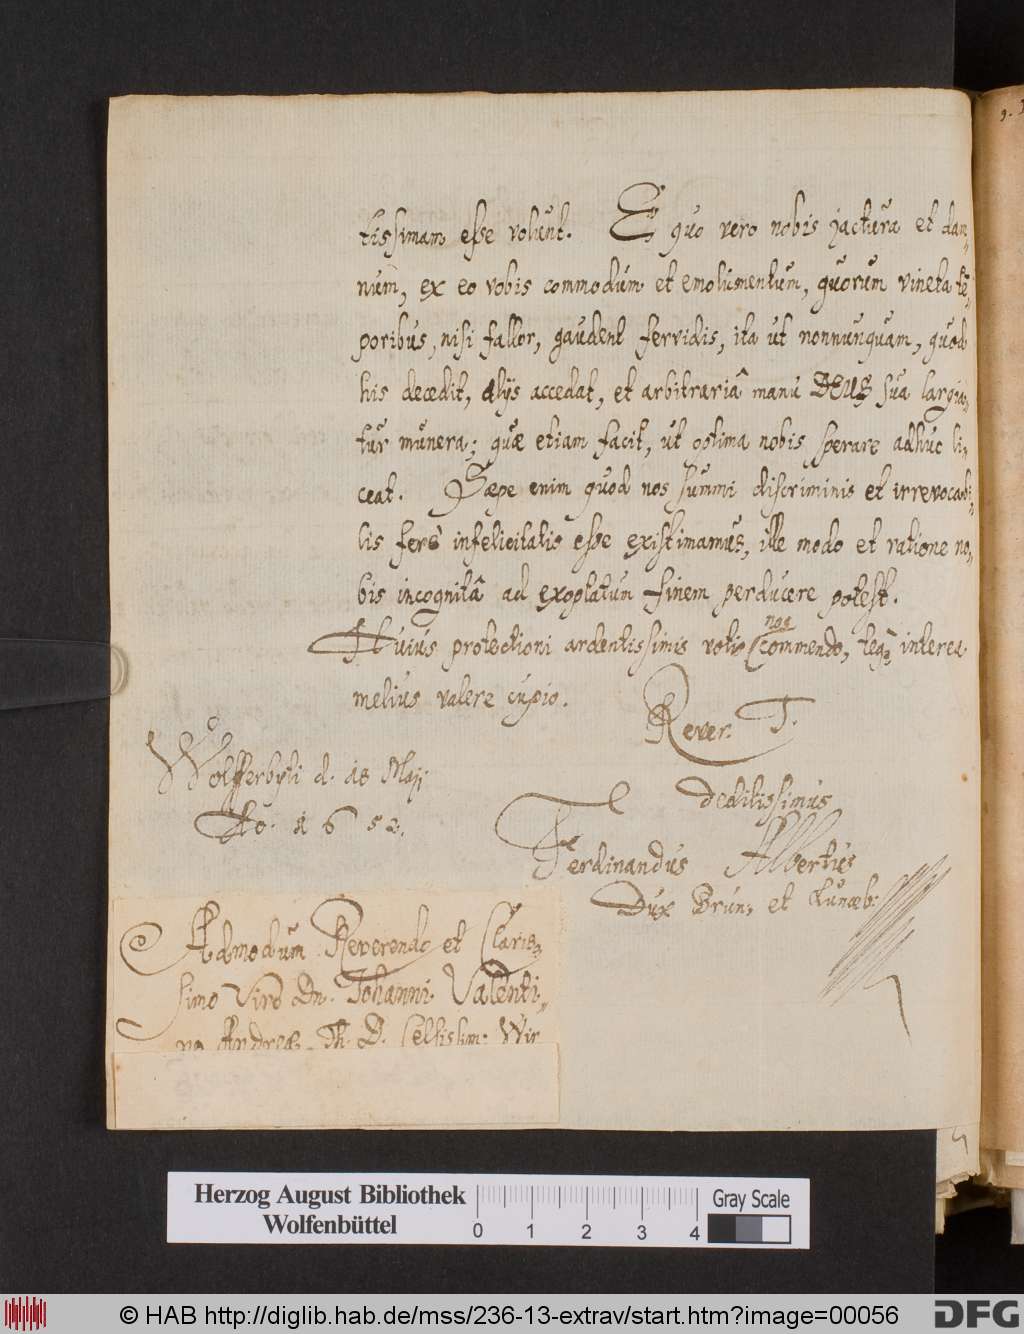 tissimam esse volunt. E quo vero nobis jactura et dam,
num, ex eo vobis commodum et emolumentum, quorum vineta tē,
poribus, nisi fallor, gaudent fervidis, ita ut nonnunquam, quod
his decedit, alijs accedat, et arbitrariâ manu DEUS sua largia,
tur munera; quæ etiam facit, ut optima nobis sperare adhuc li,
ceat. Sæpe enim quod nos summi discriminis et irrevocabi,
lis fere infelicitatis esse existimamus, ille modo et ratione no,
bis incognitâ ad exoptatum finem perducere potest.
nos
Huius protectioni ardentissimis votis commendo, teq₃ interea
melius valere cupio.
Rever. T.
Wolfferbyti d. 18 Maji
Ao. 1652.
deditissimus
Ferdinandus Albertus
Dux Brun, et Lunæb:
Admodum Reverendo et Claris,
simo Viro Dn. Johanni Valenti,
no Andreæ, Th. D. Celsissim: Wir
Herzog August Bibliothek
Wolfenbüttel
0 1 2 3 4
Gray Scale
© HAB http://diglib.hab.de/mss/236-13-extrav/start.htm?image=00056
DFG